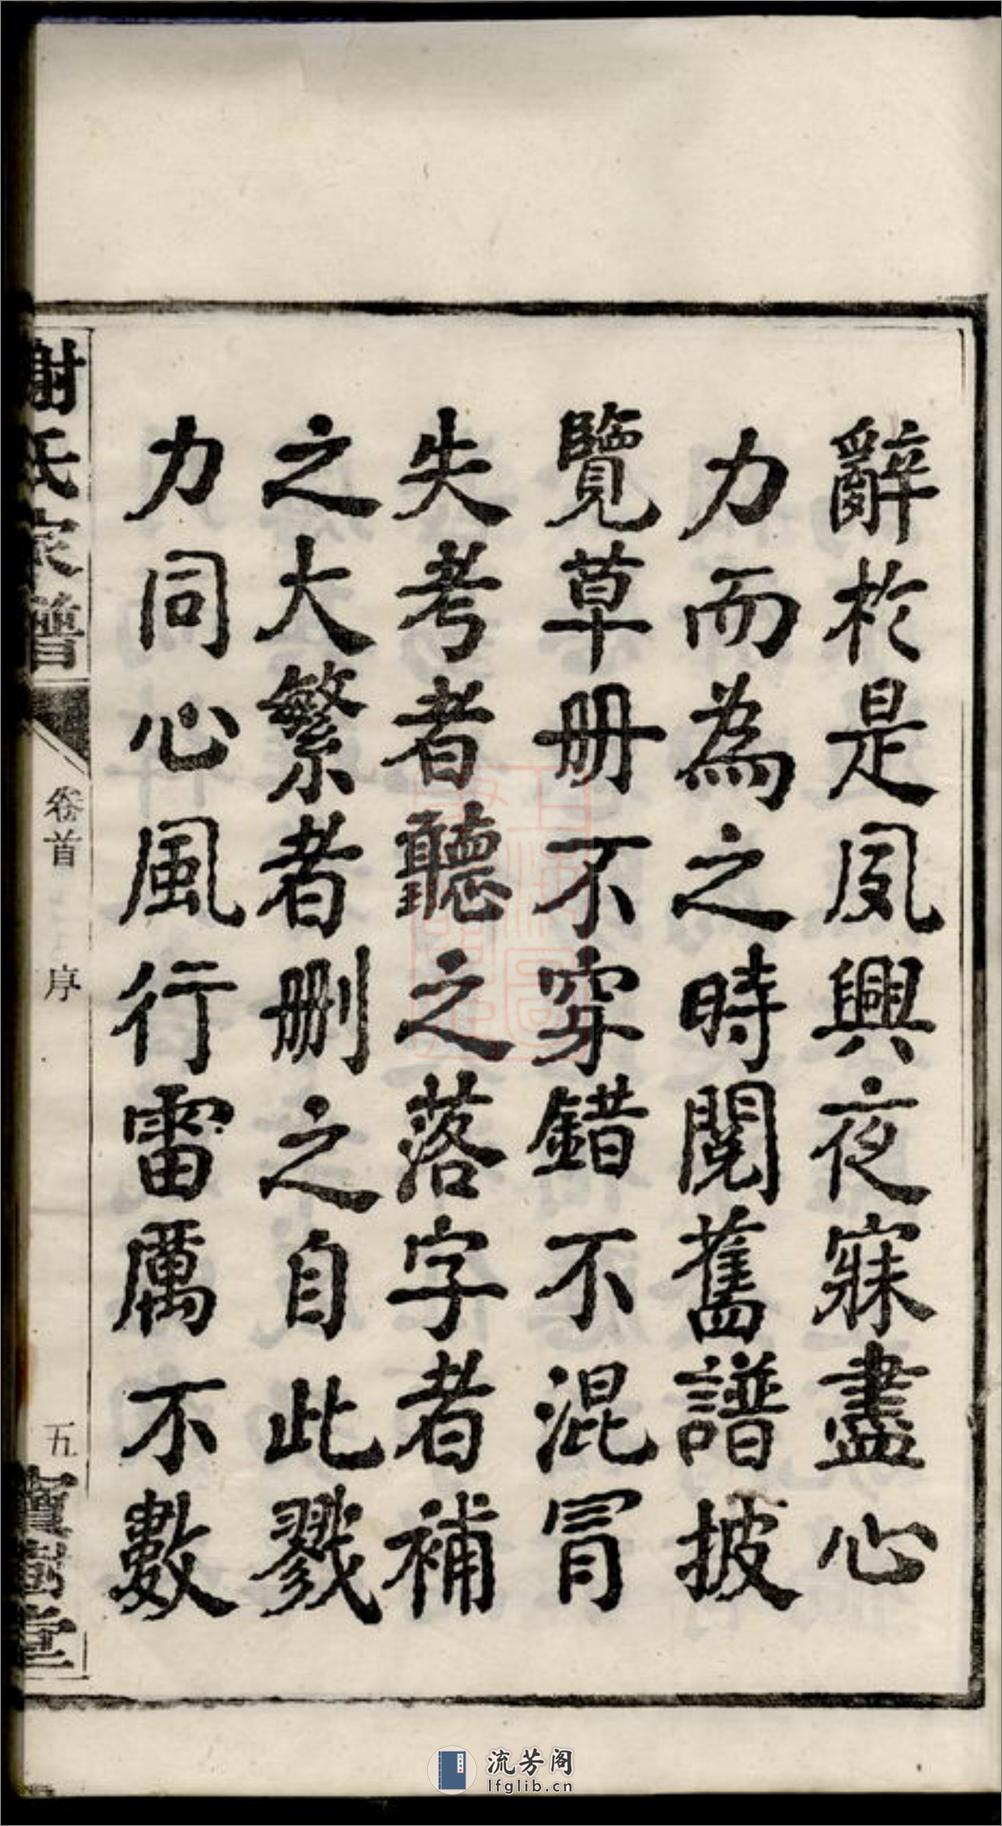 辭於是夙興夜寐盡心
力而為之時閱舊譜披
覽草册不穿錯不混冐
失考者聽之落字者補
之大繁者刪之自此戮
力同心風行雷厲不數
謝氏家譜
卷首
序
五
寶樹堂
流芳阁
lfglib.cn